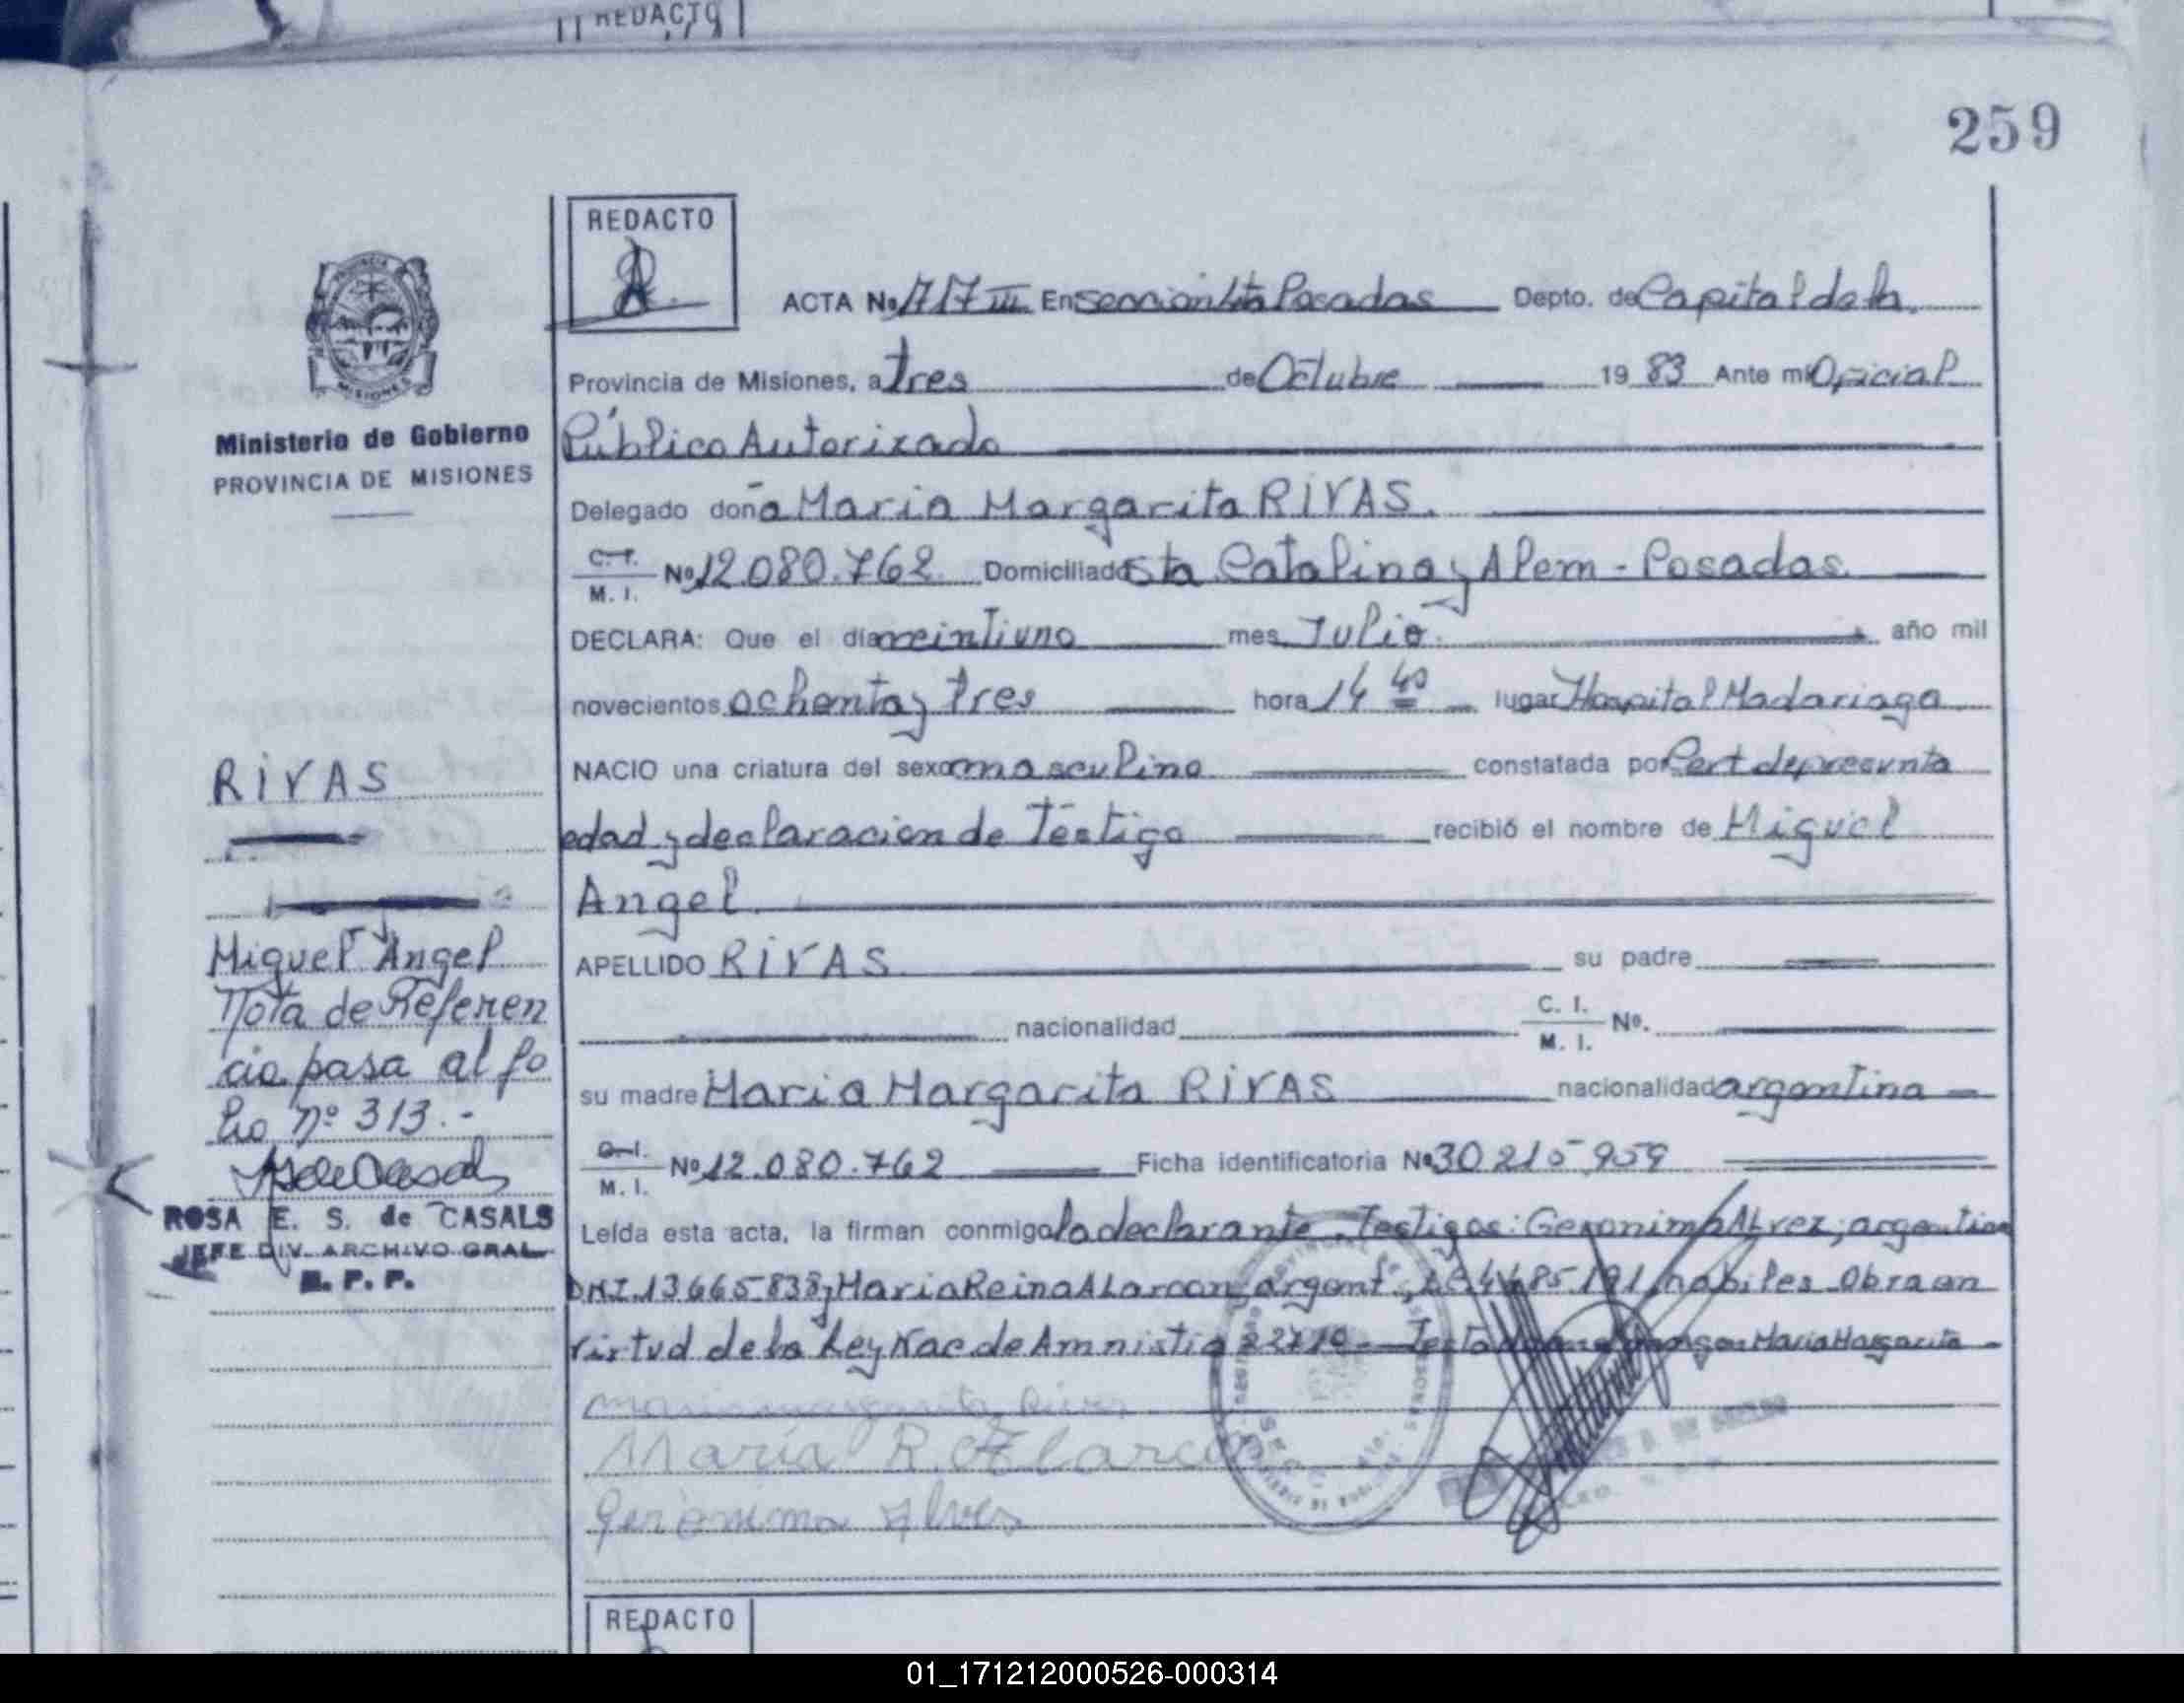 REDACTO
259
REDACTO
ACTA No 717 III En seccion 4ta Posadas Depto. de Capital de la
Provincia de Misiones, a tres de Octubre 19 83 Ante mi Oficial
Público Autorizado
Ministerio de Gobierno
PROVINCIA DE MISIONES
Delegado doña Maria Margarita RIVAS.
C. I.
M. I.
No 12.080.762 Domiciliado Sta Catalina y Alem - Posadas.
DECLARA: Que el día veintiuno mes Julio. año mil
novecientos ochenta y tres hora 14 40 lugar Hospital Madariaga
NACIO una criatura del sexo masculino constatada por Cert de presunta
edad y declaracion de Testigo recibió el nombre de Miguel
Angel
APELLIDO RIVAS su padre
nacionalidad C. I.
M. I.
No.
su madre Maria Margarita RIVAS nacionalidad argentina
C. I.
M. I.
No 12.080.762 Ficha identificatoria No 30 215 959
Leída esta acta, la firman conmigo la declarante. Testigos: Geronima Alvez, argentina
DNI.13.665.838 y Maria Reina Alarcon, argent., habiles. Obra en
virtud de la Ley Nac de Amnistia Maria Margarita
Maria R. Alarcon
Geronima Alves
RIVAS
Miguel Angel
Nota de Referen
cia pasa al fo
lio nº 313.-
ROSA E. S. de CASALS
JEFE DIV. ARCHIVO GRAL.
R. P. P.
REDACTO
01_171212000526-000314